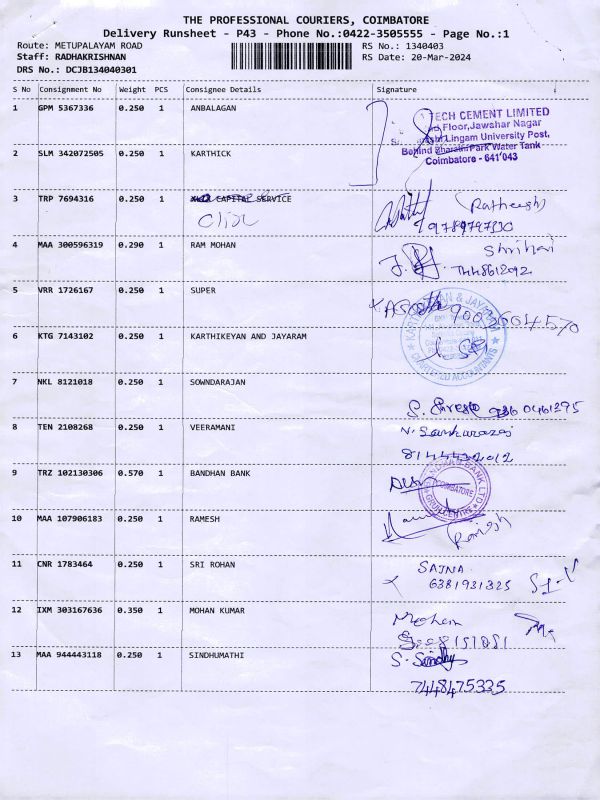 THE PROFESSIONAL COURIERS, COIMBATORE
Delivery Runsheet - P43 - Phone No.:0422-3505555 - Page No.:1
Route: METUPALAYAM ROAD RS No.: 1340403
Staff: RADHAKRISHNAN RS Date: 20-Mar-2024
DRS No.: DCJB134040301
S No Consignment No Weight PCS Consignee Details Signature
1 GPM 5367336 0.250 1 ANBALAGAN
TECH CEMENT LIMITED
Floor, Jawahar Nagar
Lingam University Post,
Behind Bharathi Park Water Tank
Coimbatore - 641 043
2 SLM 342072505 0.250 1 KARTHICK
3 TRP 7694316 0.250 1 CAPITAL SERVICE
(Ratheesh)
9789797330
4 MAA 300596319 0.290 1 RAM MOHAN
Shrihari
5 VRR 1726167 0.250 1 SUPER
9003604570
6 KTG 7143102 0.250 1 KARTHIKEYAN AND JAYARAM
KARTHIKEYAN & JAYARAM
CHARTERED ACCOUNTANTS
7 NKL 8121018 0.250 1 SOWNDARAJAN
8 TEN 2108268 0.250 1 VEERAMANI
9 TRZ 102130306 0.570 1 BANDHAN BANK
BANDHAN BANK LTD
COIMBATORE
10 MAA 107906183 0.250 1 RAMESH
11 CNR 1783464 0.250 1 SRI ROHAN
SAJNA
6381931325
12 IXM 303167636 0.350 1 MOHAN KUMAR
Mohan
13 MAA 944443118 0.250 1 SINDHUMATHI
S. Sindhu
7448475335